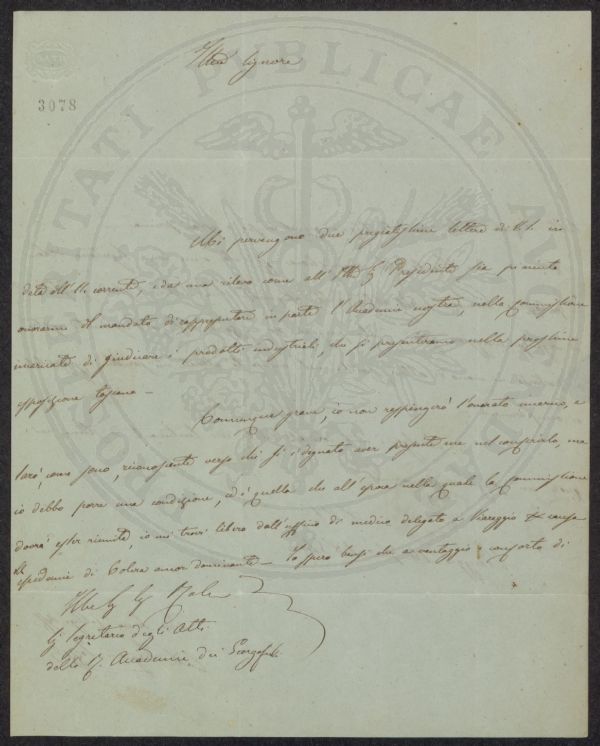 Illmo Signore
3078
PROSPERITATI PUBLICAE AUGENDAE
Mi pervengono due pregiatissime lettere di V.S. in
data dell' 11. corrente, e da una rilevo come all' Illmo Sig Presidente sia piaciuto
onorarmi il mandato di rappresentare in parte l'Accademia nostra, nella Commissione
incaricata di giudicare i prodotti industriali, che si presenteranno nella prossima
esposizione toscana —
Comunque grave, io non respingerò l'onorato incarico, e
sarò, come sono, riconoscente verso chi si è degnato aver presente me nel conferirlo, ma
io debbo porre una condizione, ed è quella che all' epoca nella quale la Commissione
dovrà esser riunita, io mi trovi libero dall' uffizio di medico delegato a Viareggio a causa
di epidemia di Colera ancor dominante — Io spero bensì che a vantaggio e conforto di
Illmo Sig Sig
Sig Segretario degli Atti
della R. Accademia dei Georgofili